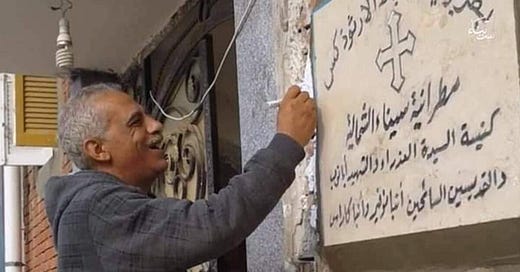 الارثوذكس
مطرانية سيناء الشمالية
كنيسة السيدة العذراء والشهيد أبانوب
والقديسين السائحين أنبا نوفر وأنبا كاراس